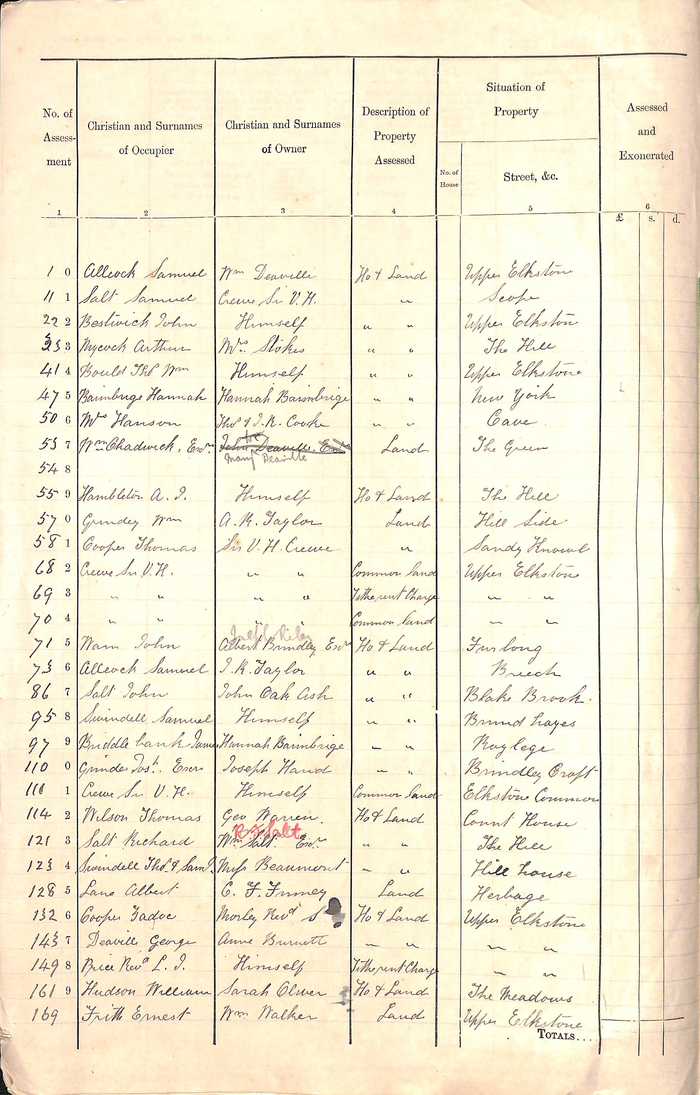 No. of Assess- ment
Christian and Surnames of Occupier
Christian and Surnames of Owner
Description of Property Assessed
Situation of Property
No. of House
Street, &c.
Assessed and Exonerated
1 2 3 4 5 6
£ s. d.
1 0 Allcock Samuel Wm Deaville Ho & Land Upper Elkstone
11 1 Salt Samuel Crewe Sir V. H. " Scope
22 2 Bestwick John Himself " " Upper Elkstone
33 3 Mycock Arthur Mrs Stokes " " The Hill
41 4 Bould Thos Wm Himself " " Upper Elkstone
47 5 Baimbrige Hannah Hannah Baimbrige " " New York
50 6 Mrs Hanson Thos & J. R. Cooke " " Cave
53 7 Wm Chadwick, Exors John Deaville Exors Land The Green
Mary Deaville
54 8
55 9 Hambleton A. J. Himself Ho & Land The Hill
57 0 Grindey Wm A. R. Taylor Land Hill Side
58 1 Cooper Thomas Sir V. H. Crewe " Sandy Knowl
68 2 Crewe Sir V. H. " " Common Land Upper Elkstone
69 3 " " " " Tithe rent Charge " "
70 4 " " " " Common Land " "
Joseph Riley
71 5 Wain John Albert Brindley Exors Ho & Land Furlong
73 6 Allcock Samuel J. R. Taylor " " Breech
86 7 Salt John John Oak Ash " " Blake Brook.
95 8 Swindell Samuel Himself " " Brund hayes
97 9 Briddle bank James Hannah Baimbrige " " Roylege
110 0 Grindey Josh. Exors Joseph Hand " " Brindley Croft
111 1 Crewe Sir V. H. Himself Common Land Elkstone Common
114 2 Wilson Thomas Geo Warren. Ho & Land Count House
R. F. Salt
121 3 Salt Richard Wm Salt. Exors " " The Hill
123 4 Swindell Thos. & Saml. Miss Beaumont " " Hill house
128 5 Lane Albert C. F. Finney Land Herbage
132 6 Cooper Zadoc Morley Revd S Ho & Land Upper Elkstone
143 7 Deaville George Anne Burnett " " " "
149 8 Price Revd L. J. Himself Tithe rent Charge " "
161 9 Hudson William Sarah Oliver Ho & Land The Meadows
169 Frith Ernest Wm Walker Land Upper Elkstone
TOTALS....